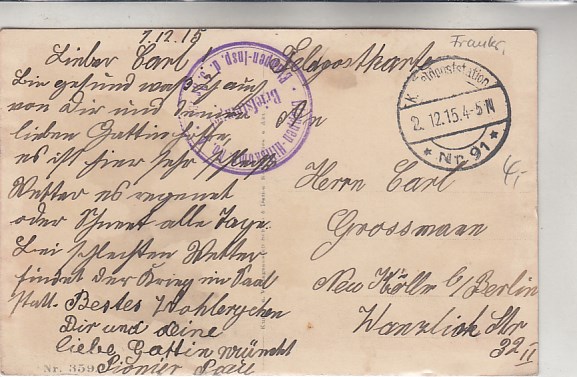 1.12.15
Lieber Carl
Bin gesund was auch
von Dir und
lieben Gattin hoffe,
es ist hier sehr schlecht
Wetter es regenet
oder Schneet alle Tage.
bei schlechten Wetter
findet der Krieg im Saal
statt. Bestes Wohlergehen
Dir und deine
liebe Gattin wünscht
Pionier
Nr. 359
Feldpostkarte
An
Herrn Carl
Grossmann
Neu Kölln b/Berlin
Wanzlick Str
32 II
Frankr.
K. Feldpoststation
2.12.15.4-5 N
* Nr. 91 *
Etappen-Insp. d.
Briefst
4,-